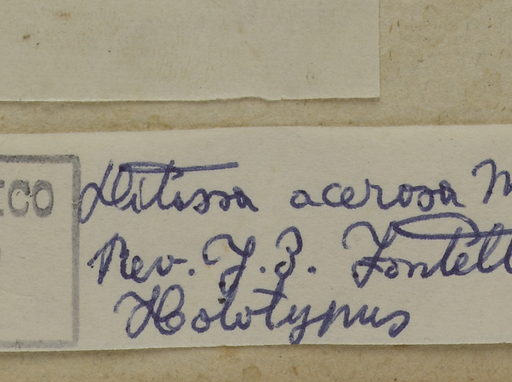 ICO
Ditassa acerosa M
Rev. J. F. Fontell
Holotypus